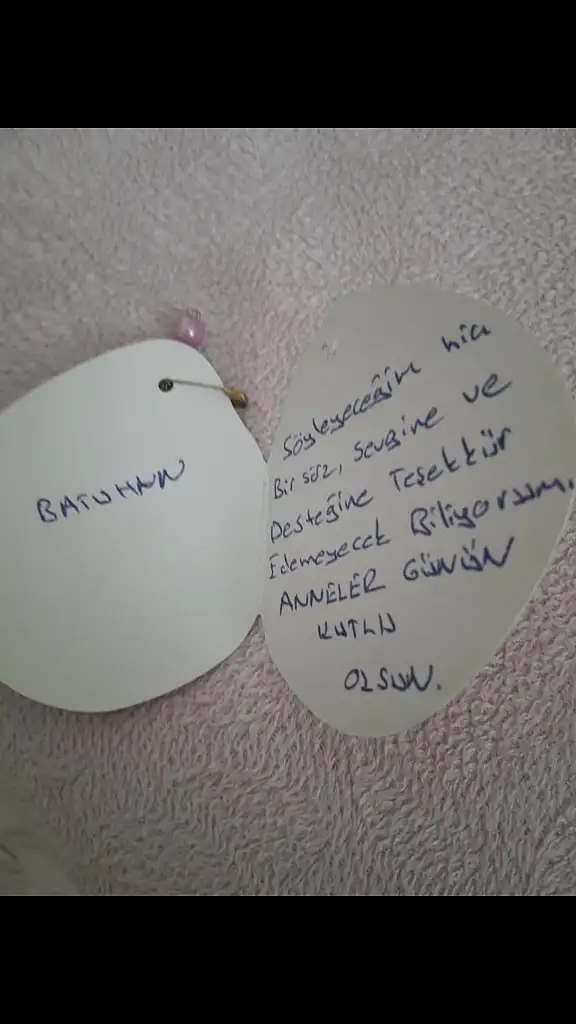 BATUHAN
Söyleyeceğim hiç
Bir söz, sevgine ve
Desteğine Teşekkür
Edemeyecek Biliyorum.
ANNELER GÜNÜN
KUTLU
OLSUN.